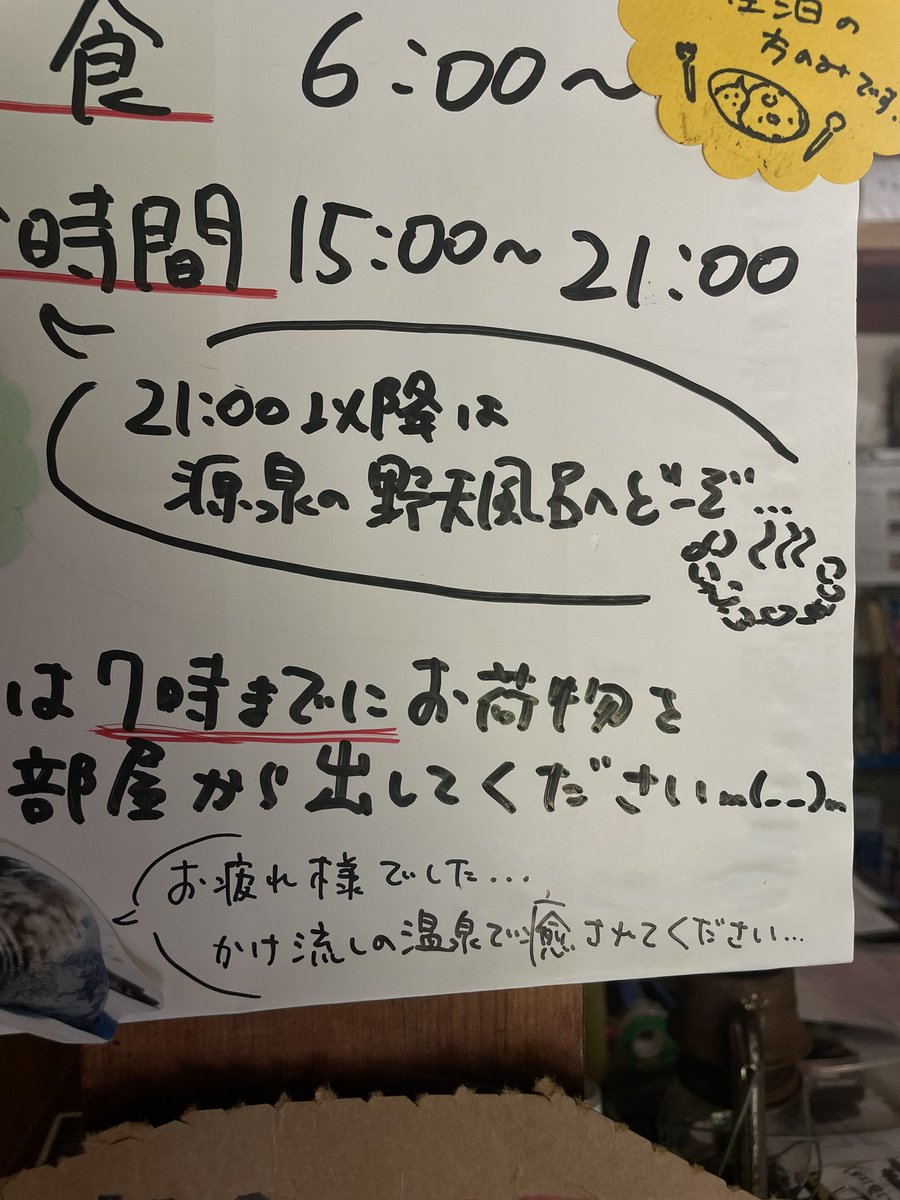 食 6:00〜
泊の
方のみです..
時間 15:00〜21:00
21:00以降は
源泉の野天風呂へどーぞ...
は7時までにお荷物を
部屋から出してくださいm(--)m
お疲れ様でした...
かけ流しの温泉で癒されてください...